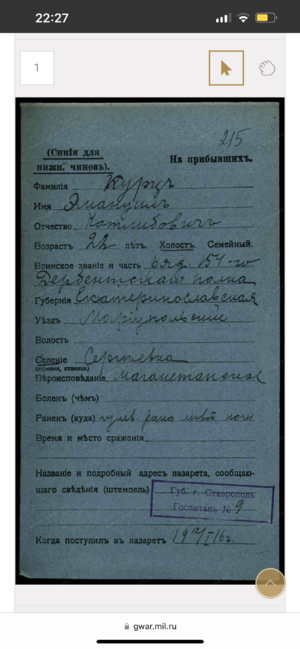 22:27
1
215
(Синiя для
нижн. чиновъ).
На прибывшихъ.
Фамилiя Курцъ
Имя Эмануилъ
Отчество Готлибовичъ
Возрастъ 22 лѣтъ. Холостъ. Семейный.
Воинское званiе и часть ряд. 154-го
Дербентскаго полка
Губернiя Екатеринославская
Уѣздъ Марiупольскiй
Волость
Селенiе Сергѣевка
(деревня, станица)
Вѣроисповѣданiе
Боленъ (чѣмъ)
Раненъ (куда) пул. рана лѣвой ноги
Время и мѣсто сраженiя
Названiе и подробный адресъ лазарета, сообщаю-
щаго свѣдѣнiя (штемпель)
Губ. г. Ставрополь
Госпиталь № 9
Когда поступилъ въ лазаретъ
gwar.mil.ru